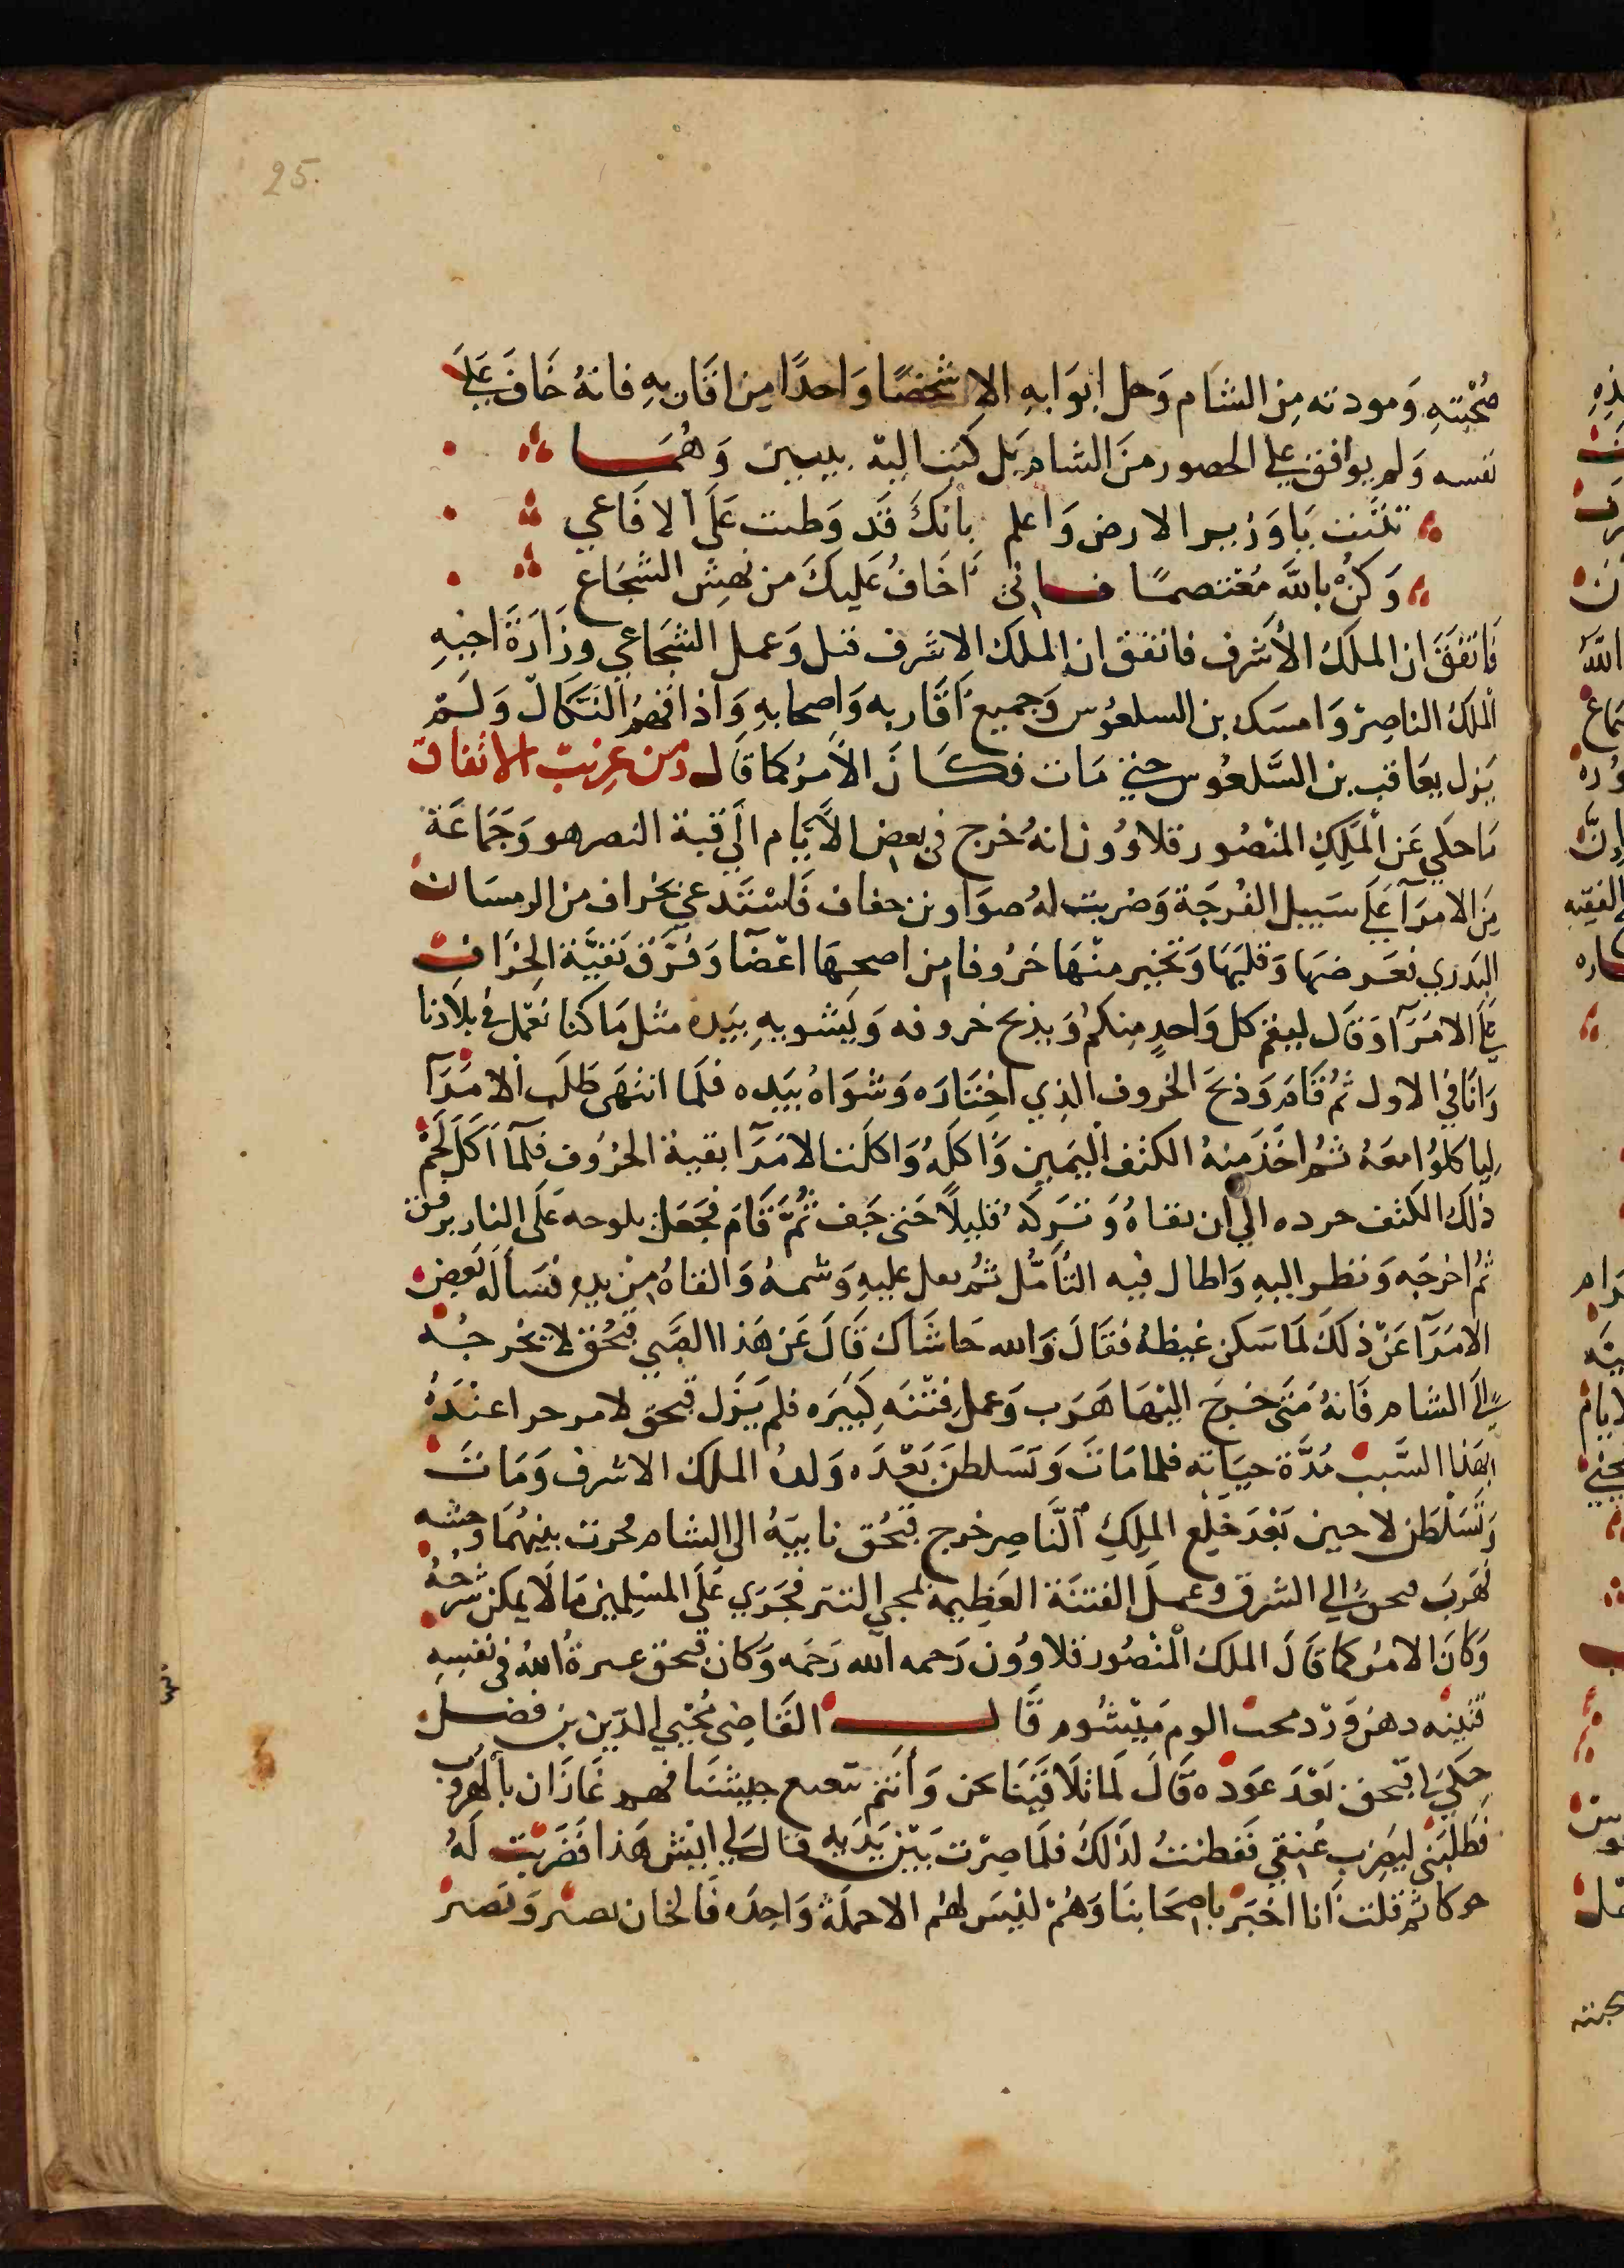 25.
صُحْبَتِهِ وَمودته مِن الشام وَحل ابوَابهِ الا شخصًا وَاحدًا مِن اقاربهِ فانهُ خَافَ عَلَى
نفسه وَلم يوافق على الحصور منَ الشام بَل كتب اليهِ ببيتين وَهُمَــا
تثبَّت يَا وَزير الارض وَاعلم بانكَ قَد وَطيت عَلَى الافَاعي
وَكُنْ بالله مُعْتصمًا فــانى اَخَافُ عَلَيكَ من نهش الشجَاع
فَاتفَقَ ان الملكُ الأشرف فاتفق ان الملك الاشرف قتل وَعمل الشجَاعي وزَارَةَ اخيهِ
الملكُ الناصِر وَامسَك بن السلعُوس وَجميع اَقَاربهِ وَاصحابهِ وَاذاقهمُ النَّكَال وَلَــم
يَزل يعَاقب بن السَّلعُوس حتي مَات فكَــانَ الاَمرُ كما قَال وَمن غريب الاتفاق
مَا حكي عَن الْمَلِكِ المنْصُور قلاوُون انهُ خرج فى بعض الاَيَّام الَى قبة النصر هو وَجَمَاعَة
مِن الامرَآ عَلَى سَبيل الفُرجَة وَضربت لهُ صوَاوين خفاف فَاسْتَدعى بخراف من الرمسَان
البَدري فعَرضهَا وَقلبَهَا وَتخير منْهَا خَرُوفا من اصحهَا اعْضَا وَفَرَّق بَقيَّة الخِرَاف
عَلَى الامَرَآ وَقَال ليقم كل وَاحدٍ مِنكم وَيذبح خروفه وَيَشويهِ بيَده مثل مَا كنا نعْمل فى بلادنا
وَانَا فى الاول ثُم قَامَ وَذبحَ الخروف الذِي اخْتَارَه وَشوَاهُ بيَده فلَما انتهَى طَلَبَ الامَرَآ
لِياكلوُا معَهُ ثُم اخَذ مِنهُ الكتف اليَمين وَاكَلهُ وَاكَلت الامَرَآ بقية الخرُوف فلَمآ اَكلَ لَحْم
ذلكَ الكتف جرده الي ان نقاهُ وَتَركهُ قليلًا حَتى جَف ثُمَّ قَامَ فَجَعَل يلوحه عَلَى النار برفق
ثُم اخرجَه وَنظر اليهِ وَاطال فيه التأَمُّل ثُم تفل عليهِ وَشمهُ وَالقاهُ مِنْ يدهِ فسَأله بَعض
الامرَآ عَنْ ذلكَ لمَا سَكن غيظهُ فقَالَ وَالله حَاشَاك قَالَ عَن هَذا الصَّبي قبْحُق لا يخرجُــه
الَى الشام فَانهُ مَتَى خَرجَ اليْهَا هَرَب وَعمل فتْنَه كَبيَره فلم يَزَل قبحق لامر حرا عنْدَهُ
بهَذا السَّبب مُدَّة حيَاته فلما مَات وَتسَلطنَ بَعْدَه وَلدُ الملك الاشرف وَمَات
وَتَسَلْطَن لاجين بَعْدَ خَلْع المَلِكِ النَّاصِر خرج قبْحُق نايبَهُ الى الشام فجرت بينهُمَا وحشه
فهرَبَ قبحق الي الشرق وعمل الفتنَة العَظِيمة بمجي التتر فجَرَي عَلَى المسْلِمينَ مَا لَا يمكن شرْحُهُ
وَكَانَ الامرُ كمَا قَالَ الملكُ الْمنْصُور قلاوُون رَحمه الله رَحمَه وَكَان قبحق عبرةُ الله فى نفسِهِ
قنينه دهن وَرْد مَيْشُوم قَالــــ القَاضِى مُحْيي الدّين بن فضل
حِكَي لى قبْحق بَعْدَ عوَده قَالَ لمَا تلَاقَيْنَا نحن وَانتم تتعتع جيشنَا فهم غَازَان بالْهرُوب
فَطَلبَنى ليَضرِب عُنقي فَفطنتُ لذَلكَ فلَما صِرْت بَيْن يَدَيهِ قال لى ايْش هَذا فَضَربْت لَهُ
جوكا ثم قلت اَنا اخبَر باصحَابنَا وَهُمْ لَيْسَ لهُم الا حملَة وَاحِدَه فَالخان يصبر وَيَبْصر